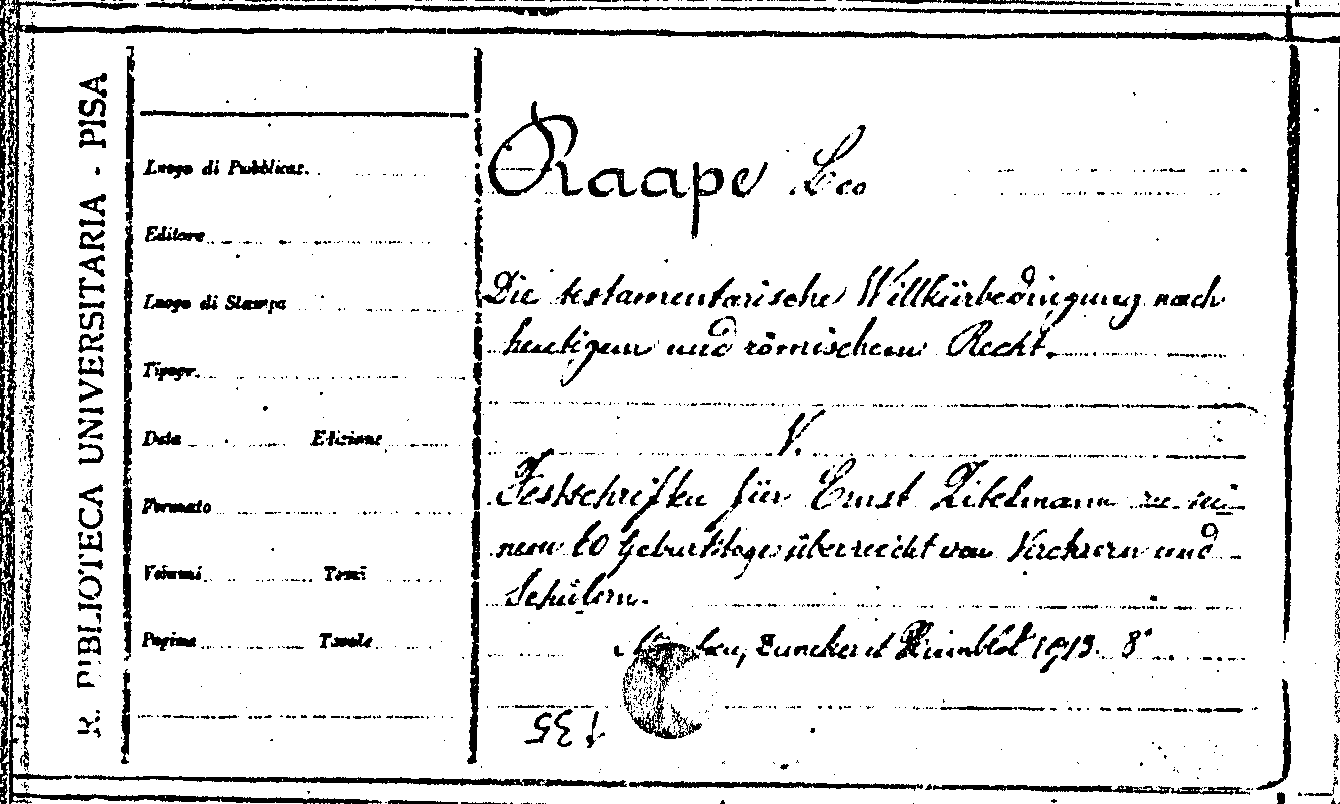 R. BIBLIOTECA UNIVERSITARIA - PISA
Luogo di Pubblicaz.
Editore
Luogo di Stampa
Tipogr.
Data Edizione
Formato
Volumi Tomi
Pagine Tavole
Raape Leo
Die testamentarische Willkürbedingung nach
heutigem und römischem Recht.
V.
Festschriften für Ernst Zitelmann zu sei-
nem 60 Geburtstage überreicht von Verehrern und
Schülern.
Duncker et Humblot 1913. 8°
135